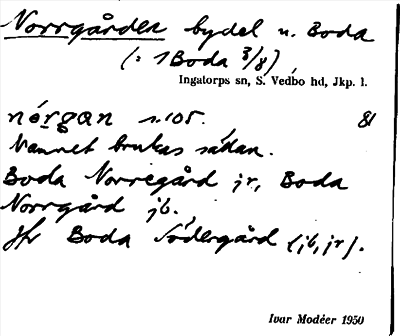 Norrgården bydel u. Boda
(: 1 Boda 3/8)
Ingatorps sn, S. Vedbo hd, Jkp. l.
nórgan s.105. 81
Namnet brukas sådan.
Boda Norregård jr, Boda
Norrgård jb.
Jfr Boda Södergård (jb, jr).
Ivar Modéer 1950